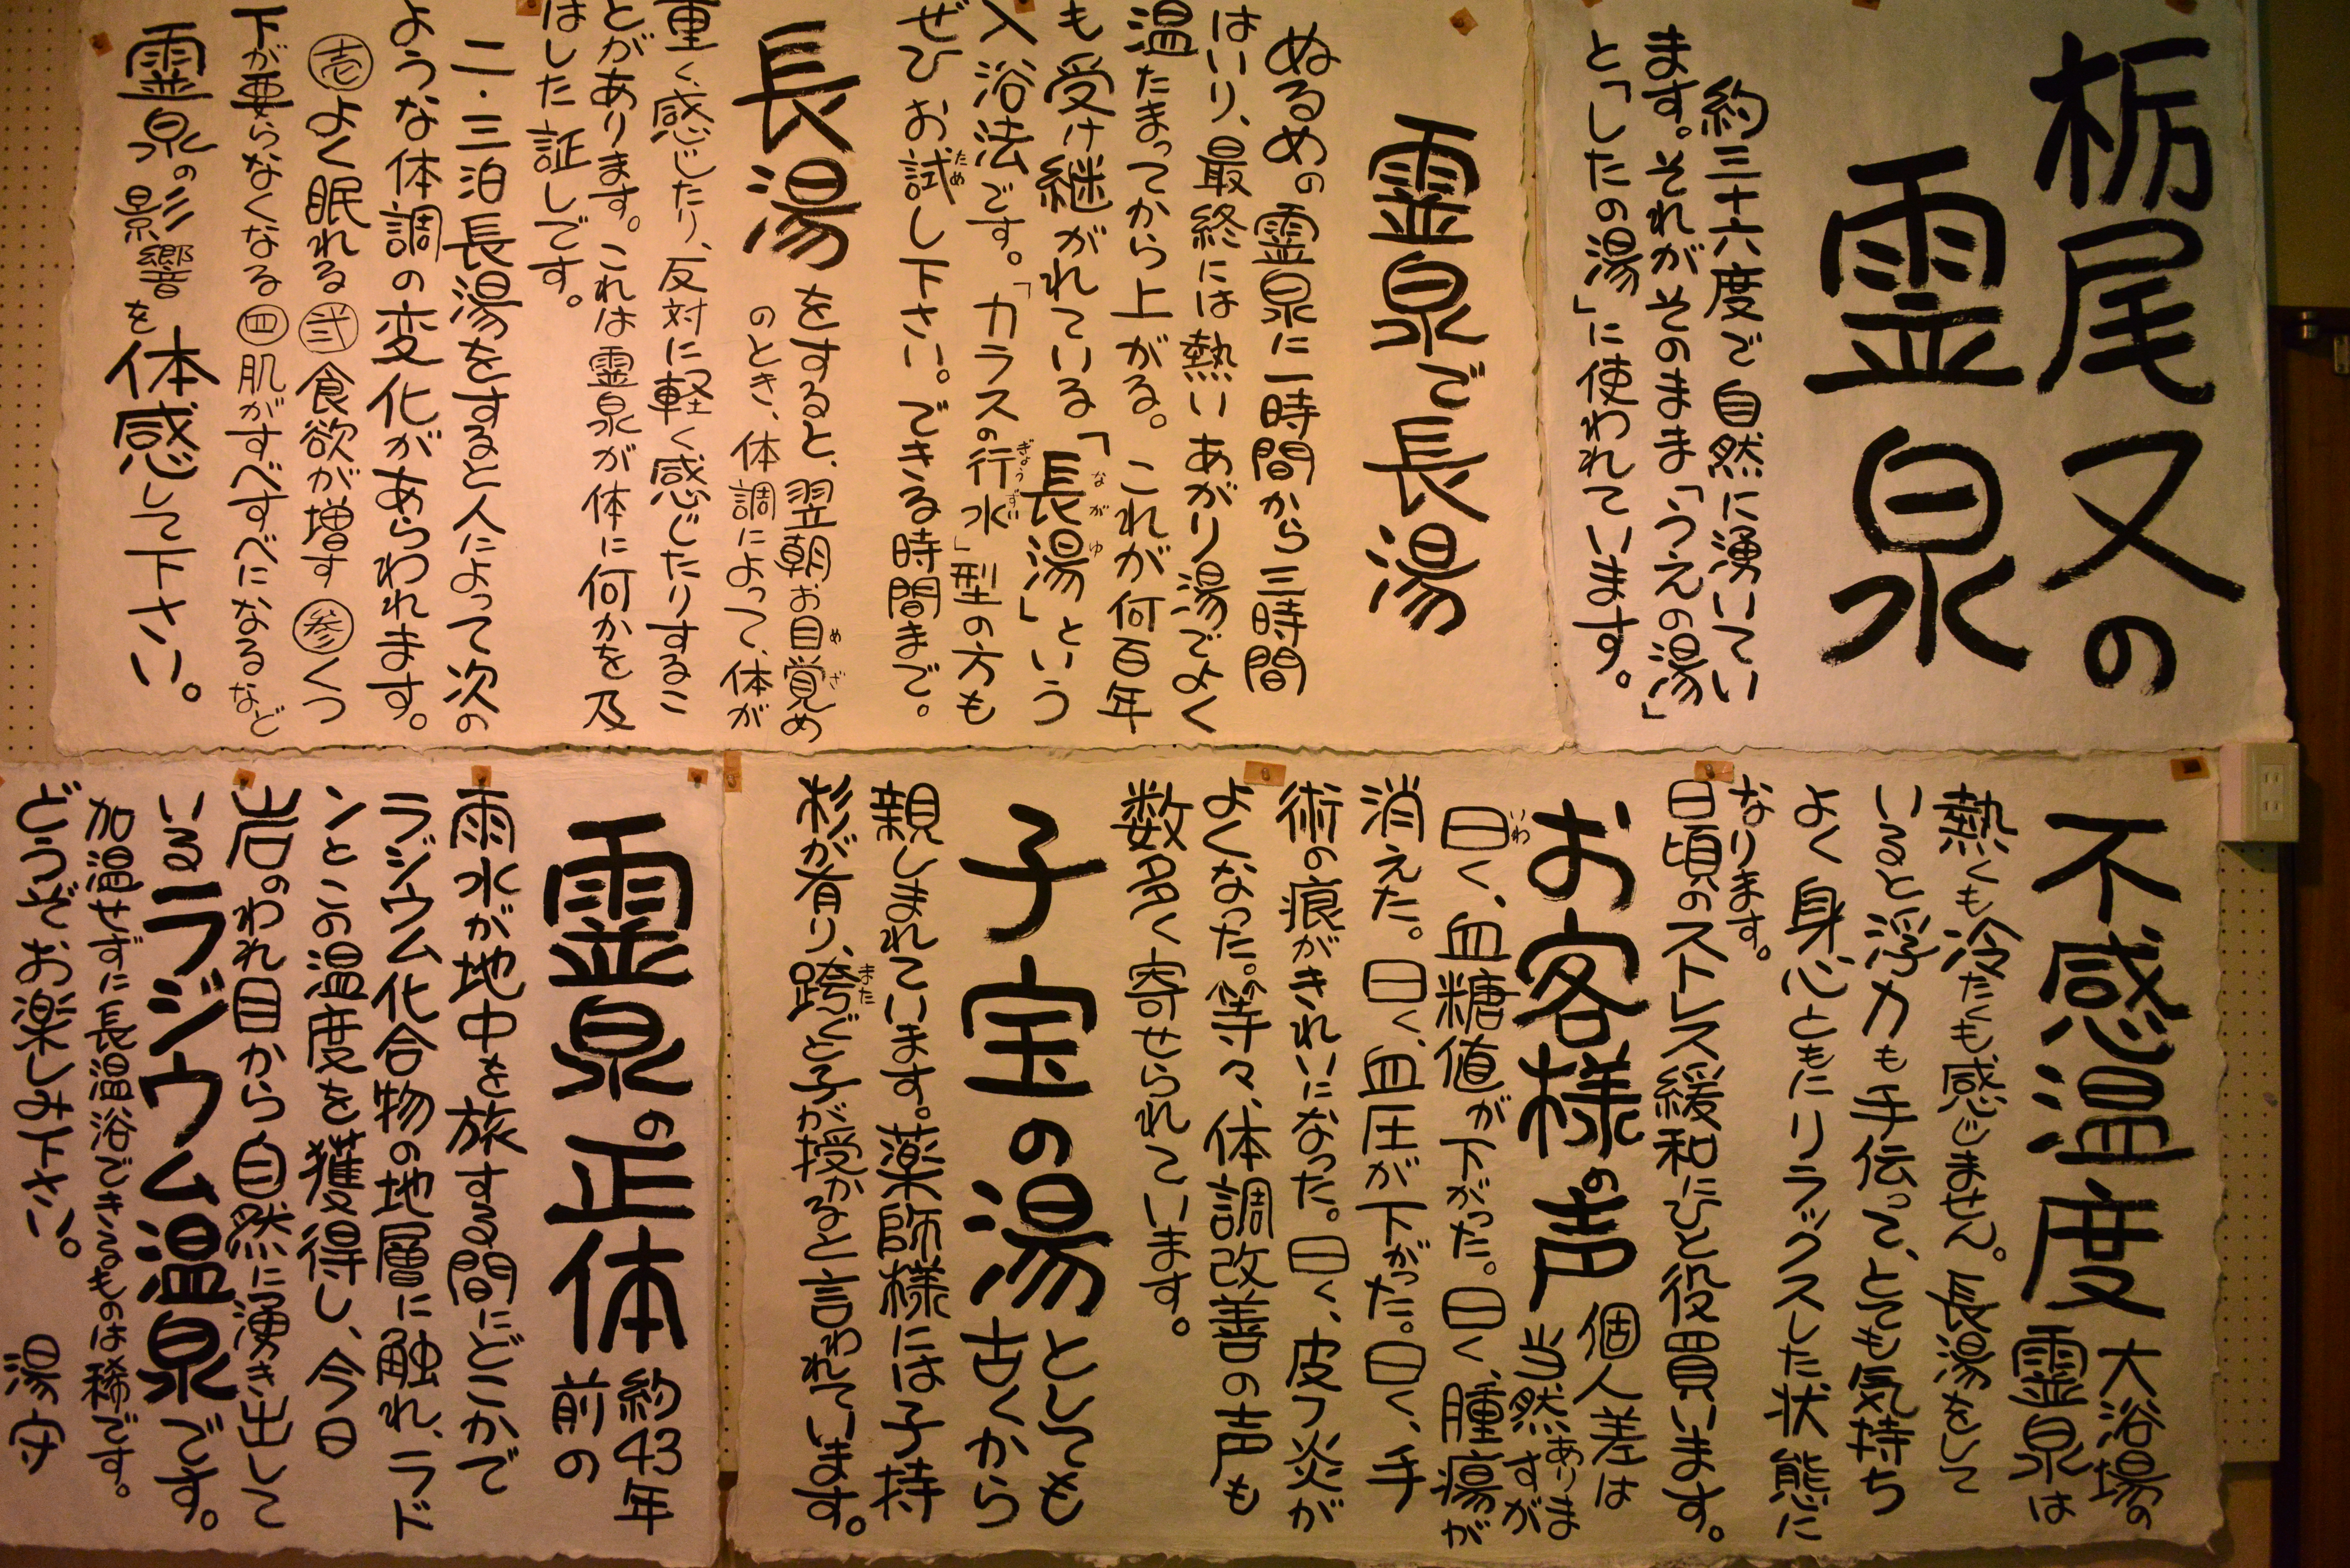 栃尾又の
霊泉
約三十六度で自然に湧いてい
ます。それがそのまま「うえの湯」
と「したの湯」に使われています。
霊泉で長湯
ぬるめの霊泉に一時間から三時間
はいり、最終には熱いあがり湯でよく
温たまってから上がる。これが何百年
も受け継がれている「長湯」という
ながゆ
入浴法です。「カラスの行水」型の方も
ぎょうずい
ぜひお試し下さい。できる時間まで。
ため
長湯をすると、翌朝お目覚め
めざ
のとき、体調によって、体が
重く感じたり、反対に軽く感じたりするこ
とがあります。これは霊泉が体に何かを及
ぼした証しです。
二・三泊長湯をすると人によって次の
ような体調の変化があらわれます。
壱よく眠れる弐食欲が増す参くつ
下が要らなくなる四肌がすべすべになるなど
霊泉の影響を体感して下さい。
不感温度大浴場の
霊泉は
熱くも冷たくも感じません。長湯をして
いると浮力も手伝って、とても気持ち
よく身心ともにリラックスした状態に
なります。
日頃のストレス緩和にひと役買います。
お客様の声個人差は
当然ありますが
曰く、血糖値が下がった。曰く、腫瘍が
いわ
消えた。曰く、血圧が下がった。曰く、手
術の痕がきれいになった。曰く、皮フ炎が
よくなった。等々、体調改善の声も
数多く寄せられています。
子宝の湯としても
古くから
親しまれています。薬師様には子持
杉が有り、跨ぐと子が授かると言われています。
また
霊泉の正体約43年
前の
雨水が地中を旅する間にどこかで
ラジウム化合物の地層に触れ、ラド
ンとこの温度を獲得し、今日
岩のわれ目から自然に湧き出して
いるラジウム温泉です。
加温せずに長温浴できるものは稀です。
どうぞお楽しみ下さい。 湯守